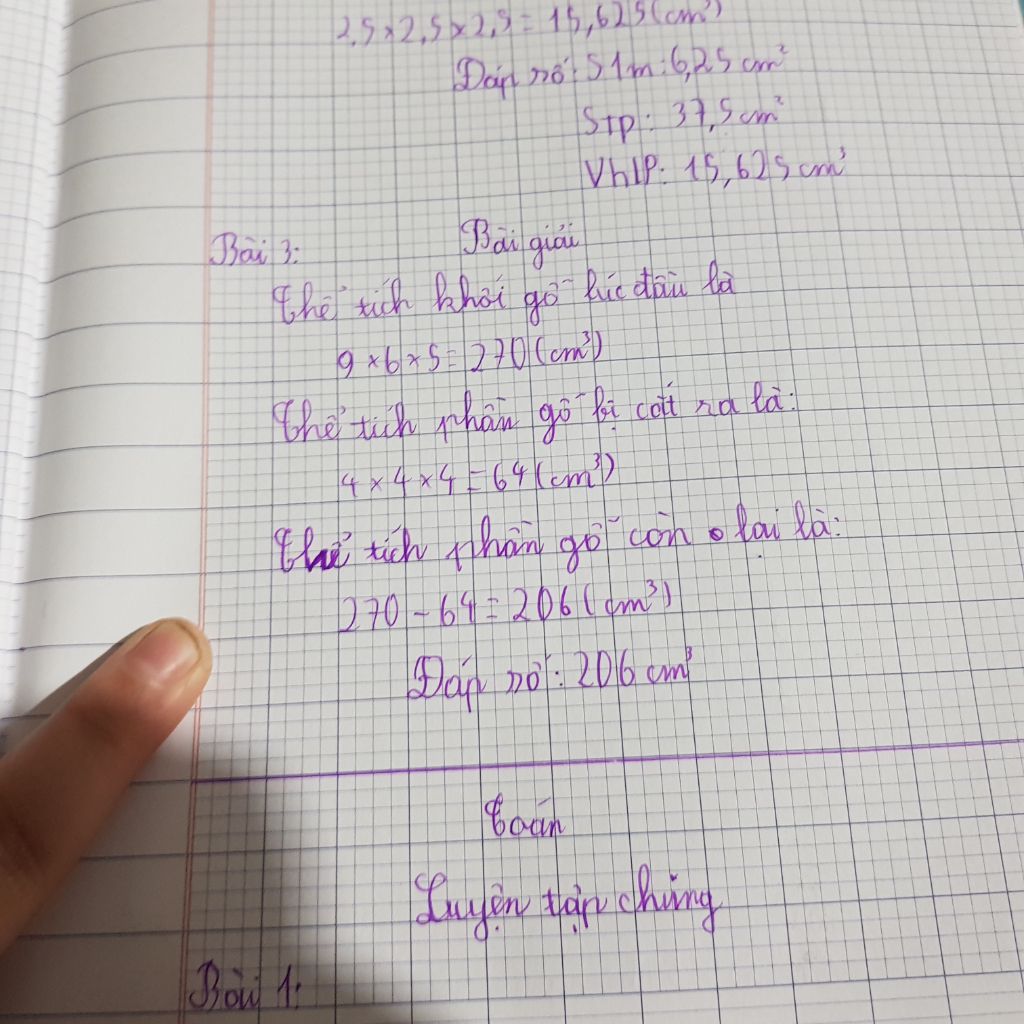 2,5 × 2,5 × 2,5 = 15,625 (cm³)
Đáp số: S1m: 6,25 cm²
Stp: 37,5 cm²
VhlP: 15,625 cm³
Bài 3: Bài giải
Thể tích khối gỗ lúc đầu là
9 × 6 × 5 = 270 (cm³)
Thể tích phần gỗ bị cắt ra là:
4 × 4 × 4 = 64 (cm³)
Thể tích phần gỗ còn lại là:
270 - 64 = 206 (cm³)
Đáp số: 206 cm³
Toán
Luyện tập chung
Bài 1: